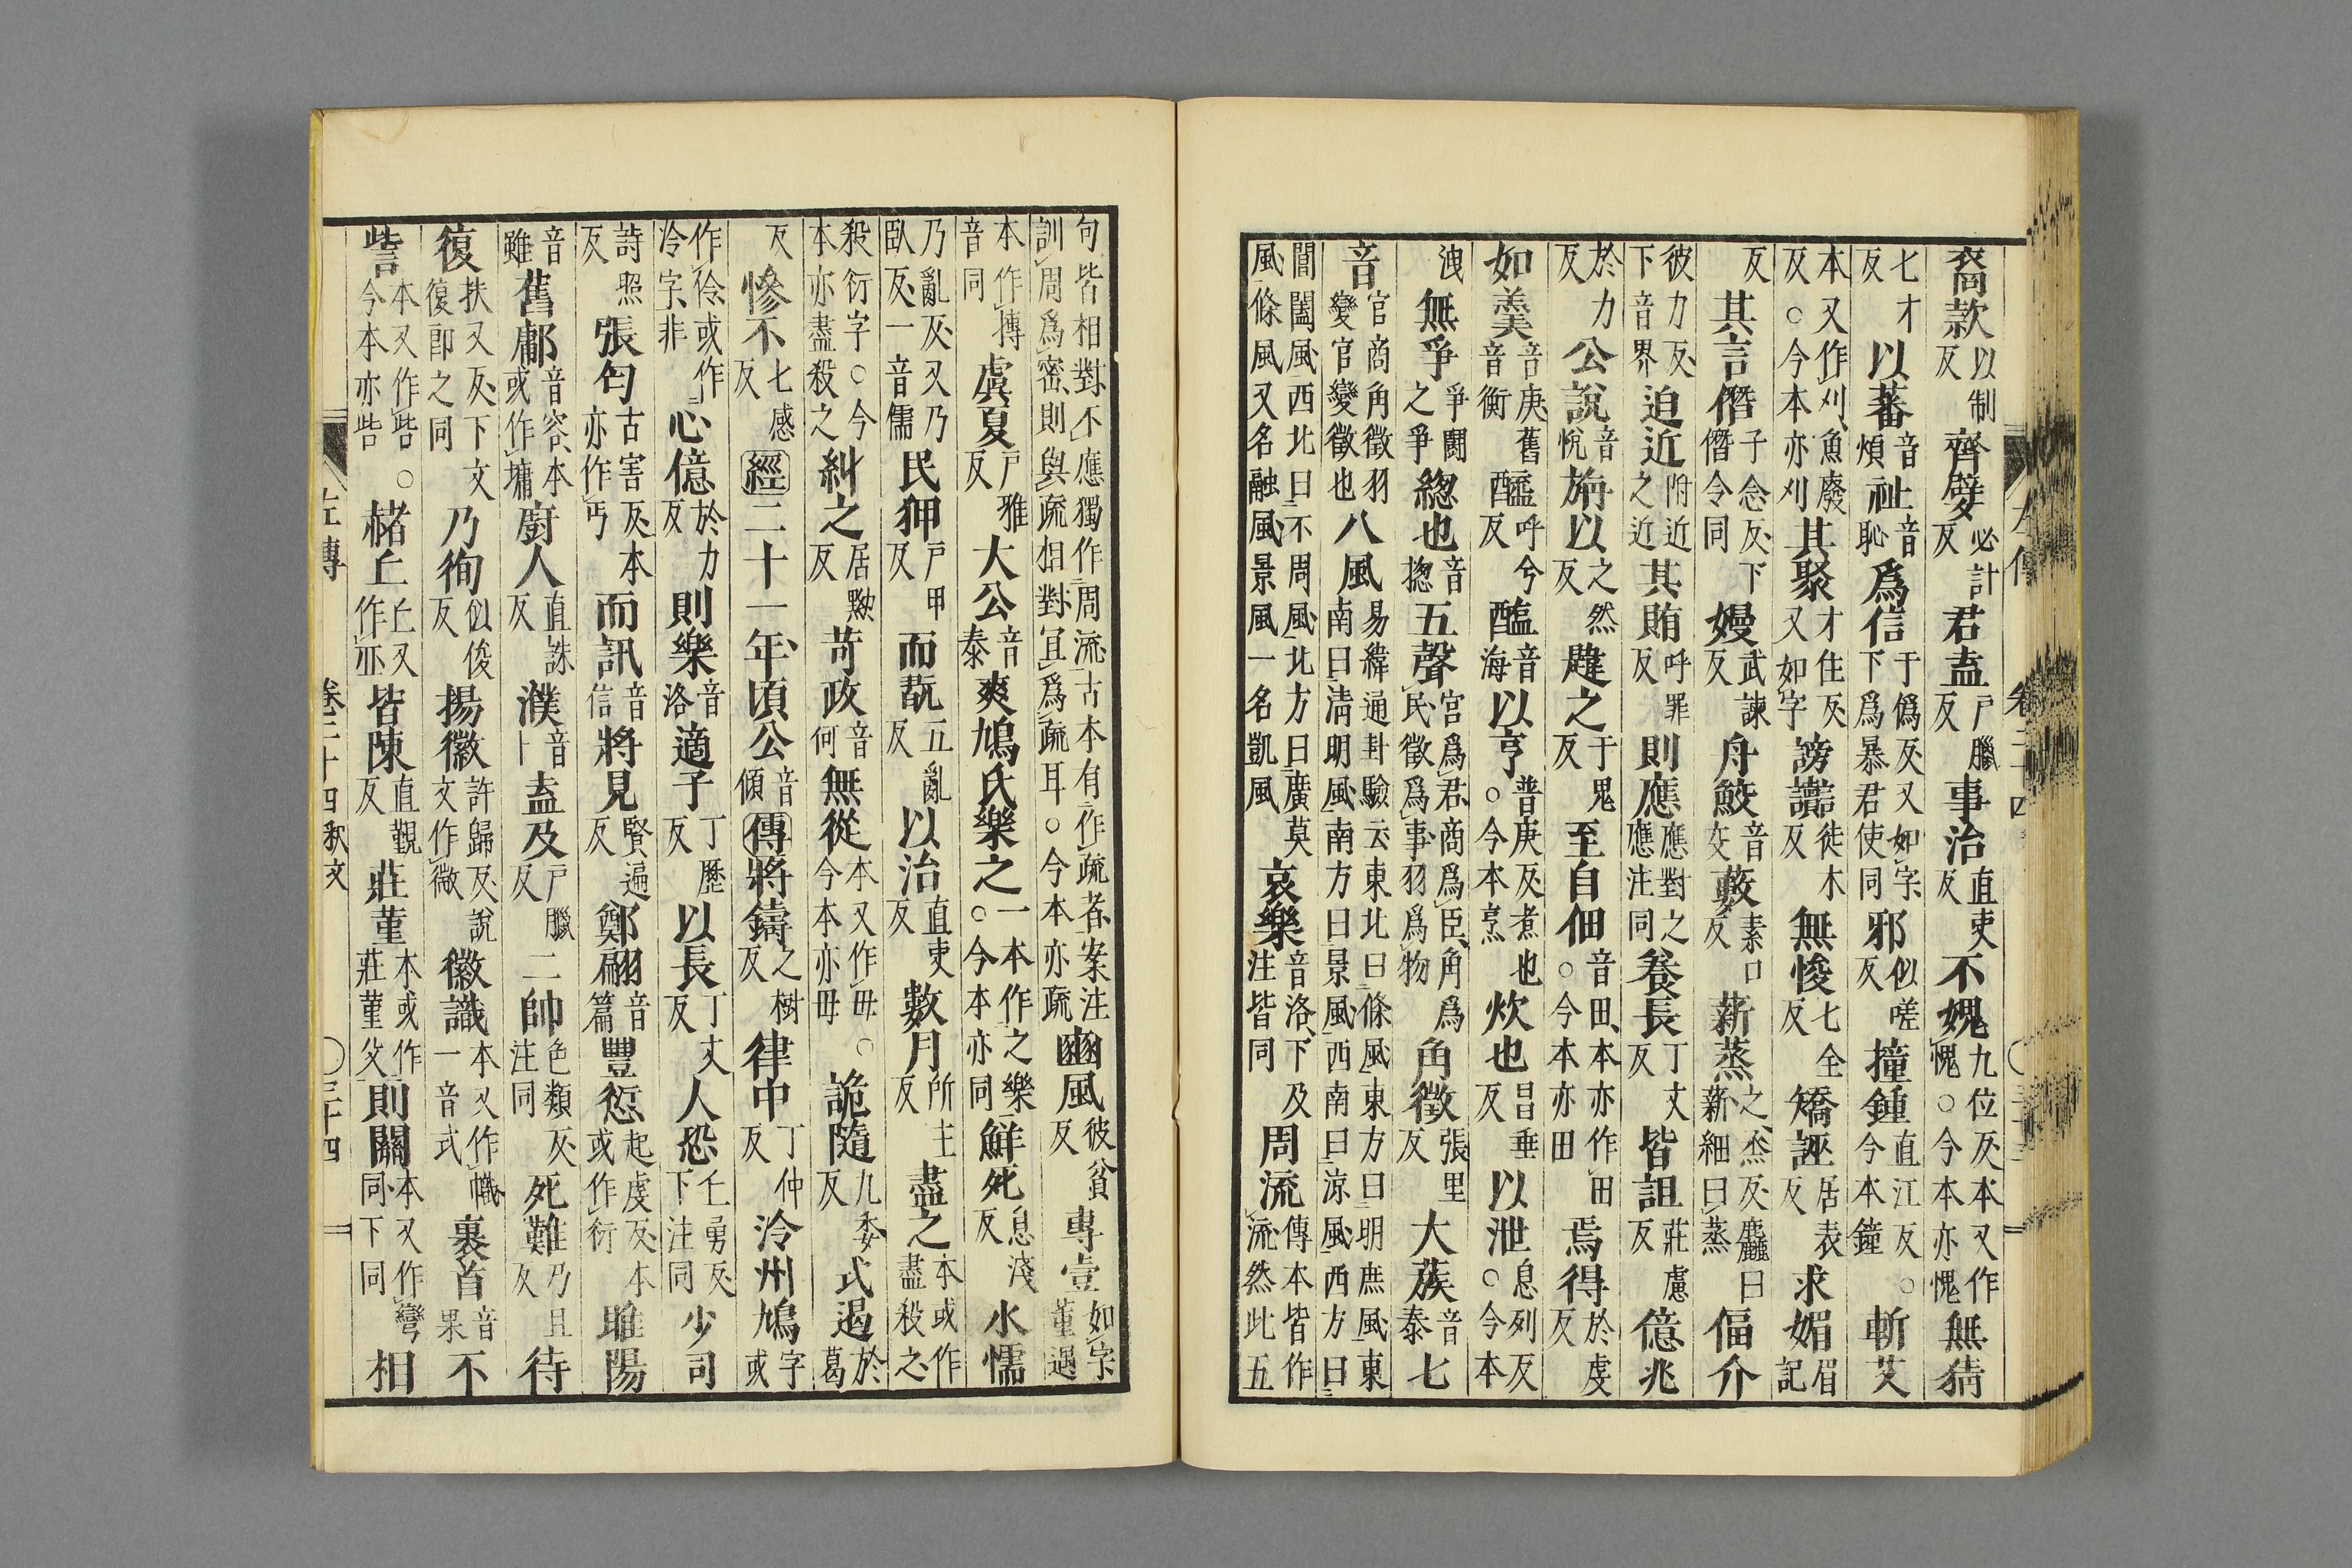 裔款以制反齊嬖必計反君盍戸臘反事治直吏反不媿九位反本又作愧○今本亦愧無猜
七才反以蕃音煩祉音恥爲信于僞反又如字下爲暴君使同邪似嗟反撞鍾直江反○今本鐘斬艾
本又作刈魚廢反○今本亦刈其聚才住反又如字謗讟徒木反無悛七全反矯誣居表反求媚眉記
反其言僭子念反下僭令同嫚武諫反舟鮫音交藪素口反薪蒸之烝反麤曰薪細曰蒸偪介
彼力反下音界迫近附近之近其賄呼罪反則應應對之應注同養長丁丈反皆詛莊慮反億兆
於力反公說音悅旃以之然反韙之于鬼反至自佃音田本亦作田○今本亦田焉得於虔反
如羹音庚舊音衡醯呼兮反醢音海以亨普庚反煮也○今本烹炊也昌垂反以泄息列反○今本
洩無爭爭鬭之爭緫也音揔五聲宮爲君商爲臣角爲民徵爲事羽爲物角徵張里反大蔟音泰七
音宮商角徵羽變宮變徵也八風易緯通卦驗云東北曰條風東方曰明庶風東南曰清明風南方曰景風西南曰涼風西方曰
閶闔風西北曰不周風北方曰廣莫風條風又名融風景風一名凱風哀樂音洛下及注皆同周流傳本皆作流然此五
句皆相對不應獨作周流古本有作疏者案注訓周爲密則與疏相對冝爲疏耳○今本亦疏豳風彼貧反專壹如字董遇
本作摶音同虞夏戸雅反大公音泰爽鳩氏樂之一本作之樂○今本亦同鮮死息淺反水懦
乃亂反又乃臥反一音儒民狎戸甲反而翫五亂反以治直吏反數月所主反盡之本或作盡殺之
殺衍字○今本亦盡殺之糾之居黝反苛政音何無從本又作毋○今本亦毋詭隨九委反式遏於葛
反慘不七感反經二十一年頃公音傾傳將鑄之樹反律中丁仲反泠州鳩字或
作伶或作泠字非心億於力反則樂音洛適子丁歷反以長丁丈反人恐丘勇反下注同少司
詩照反張匄古害反本亦作丐而訊音信將見賢遍反鄭翩音篇豐愆起虔反本或作衍睢陽
音雖舊鄘音容本或作墉廚人直誅反濮音卜盍及戸臘反二帥色類反注同死難乃且反待
復扶又反下文復即之同乃徇似俊反揚徽許歸反說文作微徽識本又作幟一音式裹首音果不
訾本又作呰○今本亦呰赭丘丘又作㐀皆陳直覲反莊堇本或作莊堇父則關本又作彎同下同相
左傳 卷二十四考文 〇三十四